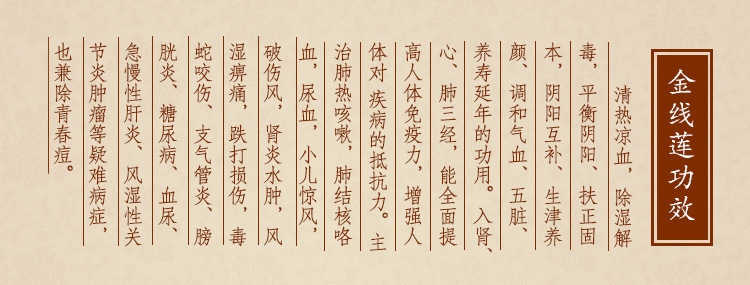 金线莲功效
清热凉血，除湿解
毒，平衡阴阳、扶正固
本，阴阳互补、生津养
颜、调和气血、五脏、
养寿延年的功用。入肾、
心、肺三经，能全面提
高人体免疫力，增强人
体对 疾病的抵抗力。主
治肺热咳嗽，肺结核咯
血，尿血，小儿惊风，
破伤风，肾炎水肿，风
湿痹痛，跌打损伤，毒
蛇咬伤、支气管炎、膀
胱炎、糖尿病、血尿、
急慢性肝炎、风湿性关
节炎肿瘤等疑难病症，
也兼除青春痘。